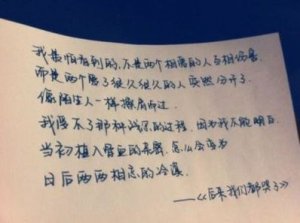 我最怕看到的,不是两个相爱的人互相伤害
而是两个爱了很久很久的人突然分开了.
像陌生人一样擦肩而过.
我受不了那种残忍的过程,因为我不能明白
当初植入骨血的亲密,怎么会变为
日后两两相忘的冷漠.
——《后来我们都哭了》